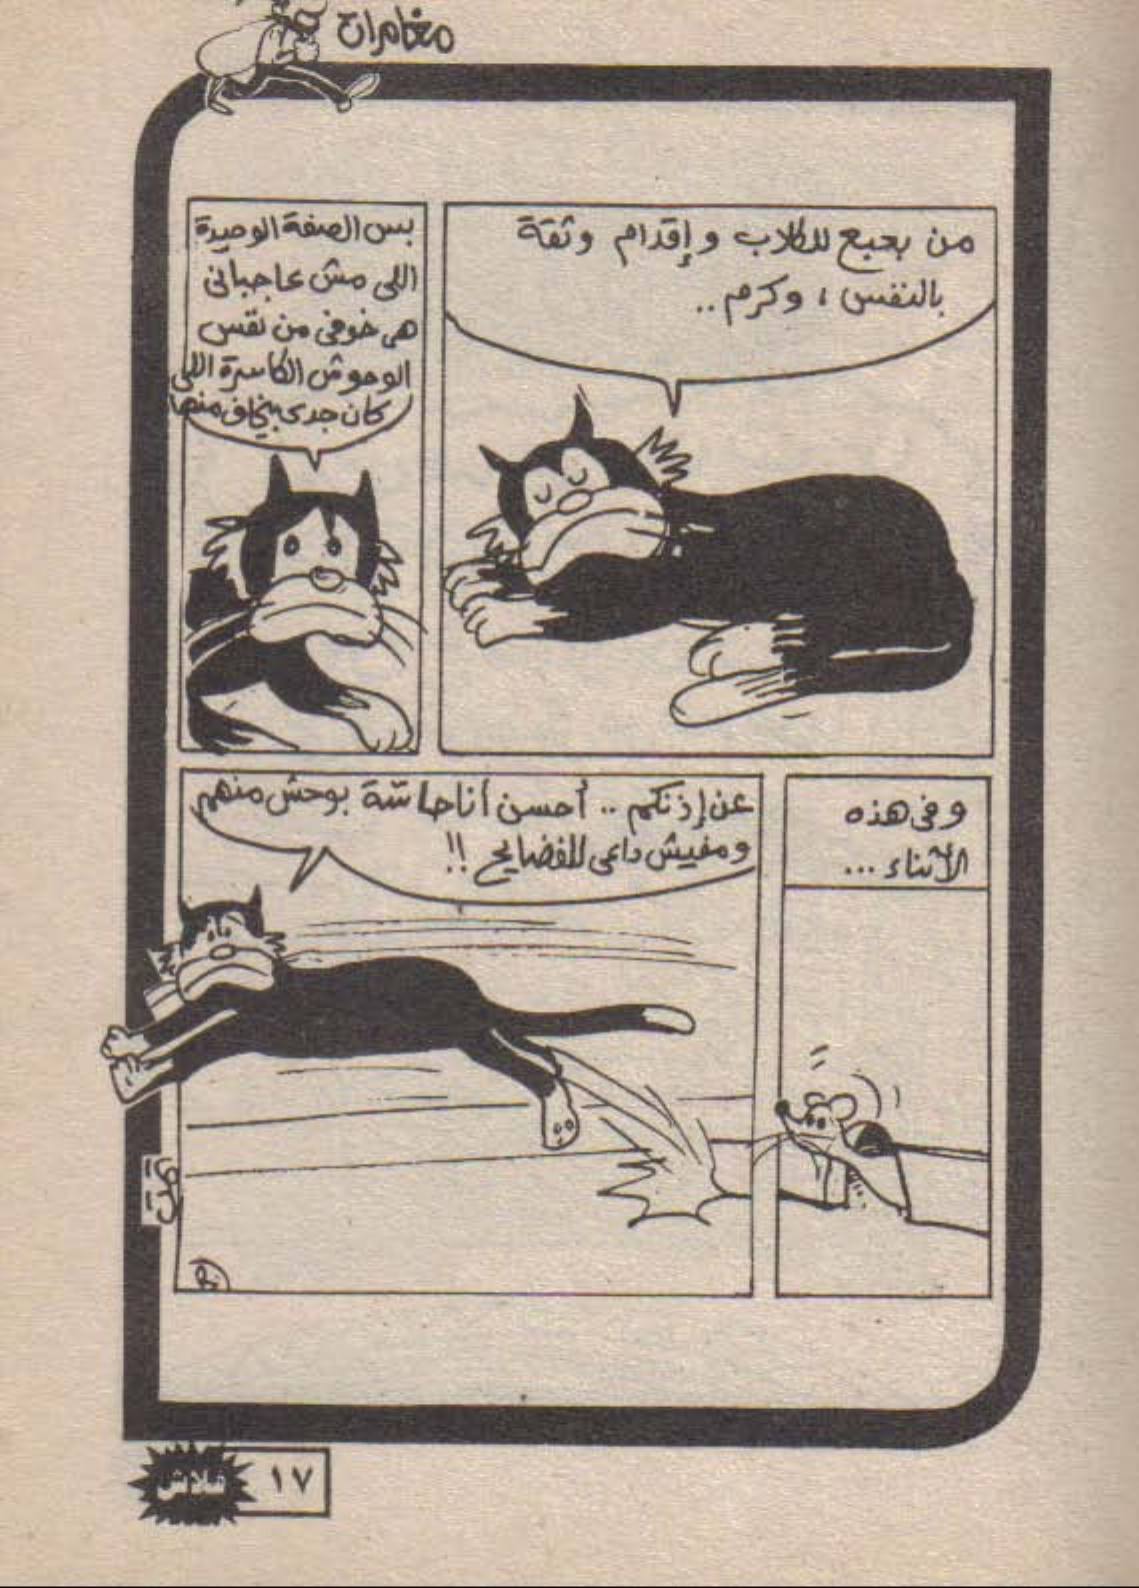 مغامرات
من بعبع للكلاب وإقدام وثقة
بالنفس، وكرم..
بس الصفة الوحيدة
اللى مش عاجبانى
هى خوفى من نفس
الوحوش الكاسرة اللى
كان جدى بيخاف منها
وفى هذه
الأثناء ...
عن إذنكم .. أحسن أنا حاسة بوحش منهم
ومفيش داعى للفضايح !!
فلاش
١٧